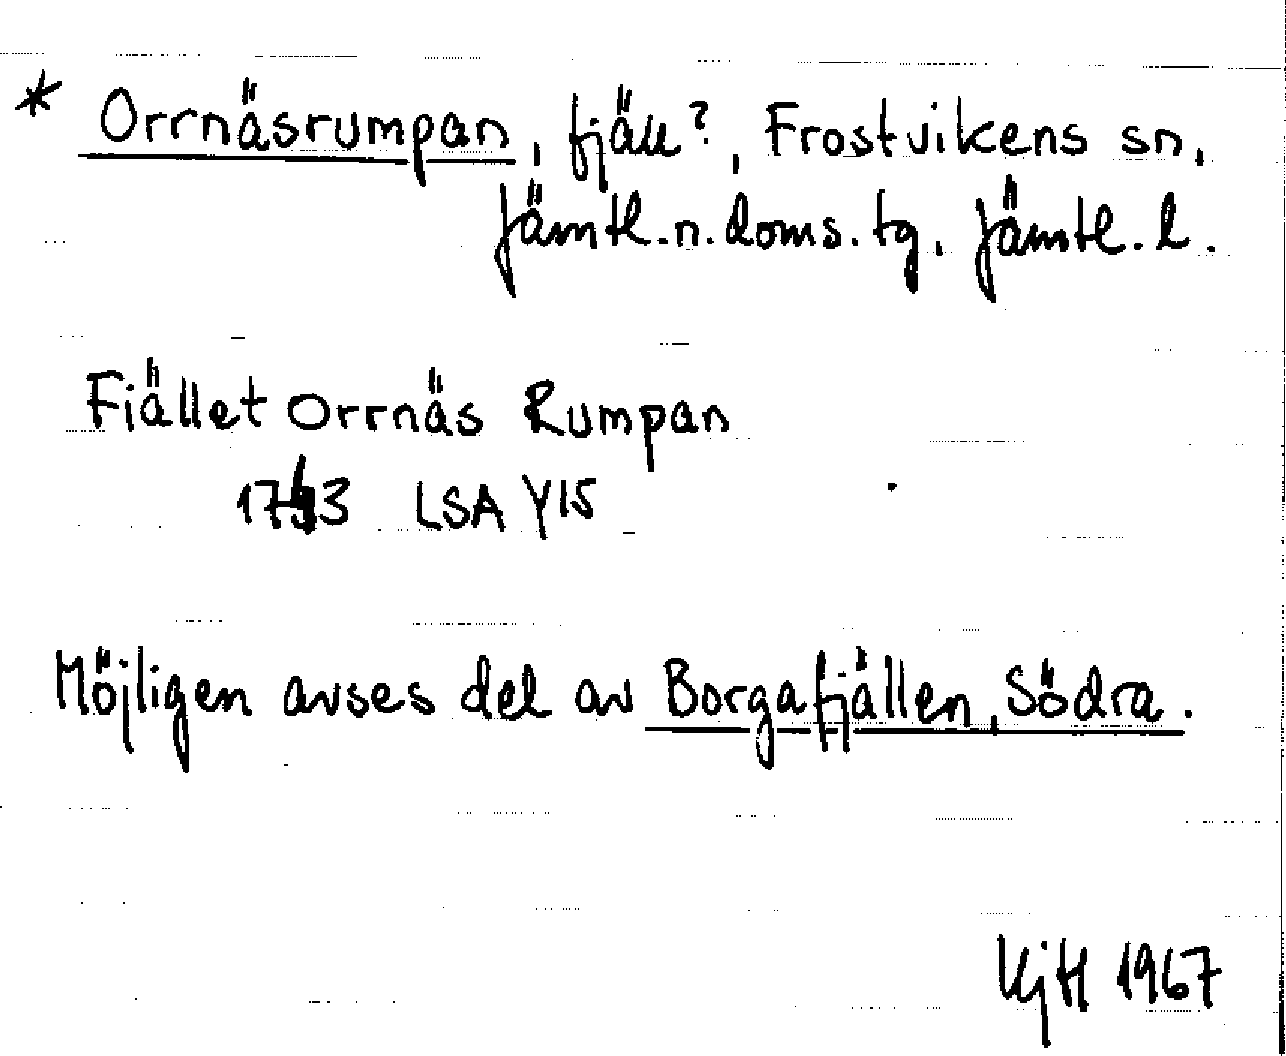 * Orrnäsrumpan, fjäll?, Frostvikens sn,
Jämtl.n.doms.tg, Jämtl.l.
Fiället Orrnäs Rumpan
1743 LSA Y15
Möjligen avses del av Borgafjällen, Södra.
KjH 1967